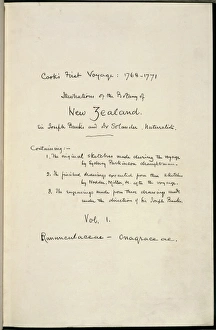 Cook's First Voyage: 1768-1771
Illustrations of the Botany of
New Zealand.
Sir Joseph Banks and Dr Solander Naturalists.
Containing:-
1. The original sketches made during the voyage
by Sydney Parkinson draughtsman.
2. The finished drawings executed from these sketches
by Nodder, Miller, &c after the voyage.
3. The engravings made from these drawings made
under the direction of Sir Joseph Banks
Vol. 1.
Ranunculaceae - Onagraceae.